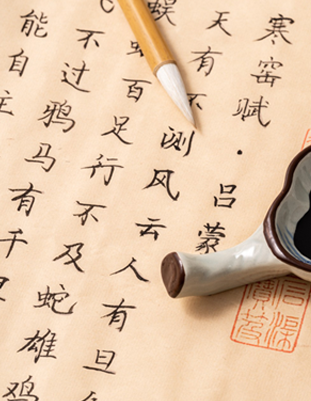 寒窑赋·吕蒙
天有不测风云人有旦
蜈蚣百足行不及蛇雄鸡
不过鸦马有千
能自